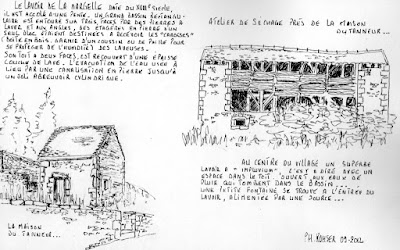 LE LAVOIR DE LA NARGELLE DATE DU XVIIIe SIECLE,
IL EST ACCOLÉ À UNE PENTE. UN GRAND BASSIN RECTANGU-
LAIRE EST ENTOURÉ SUR TROIS FACES PAR DES PIERRES À
LAVER ET AUX ANGLES, DES ETAGERES EN PIERRE D'UN
SEUL BLOC ETAIENT DESTINÉES A RECEVOIR LES "CAROSSES"
(BOITE EN BOIS, GARNIE D'UN COUSSIN OU DE PAILLE POUR
SE PROTEGER DE L'HUMIDITÉ) DES LAVEUSES.
SON TOIT À DEUX PANS, EST RECOUVERT D'UNE ÉPAISSE
COUCHE DE LAUZE. L'EVACUATION DE L'EAU USÉE A
LIEU PAR UNE CANALISATION EN PIERRE JUSQU'À
UN JOLI ABREUVOIR CYLINDRIQUE.
ATELIER DE SECHAGE PRÈS DE LA MAISON
DU TANNEUR...
LA MAISON
DU TANNEUR...
AU CENTRE DU VILLAGE UN SUPERBE
LAVOIR À "IMPLUVIUM", C'EST À DIRE AVEC UN
ESPACE DANS LE TOIT, OUVERT AUX EAUX DE
PLUIE QUI TOMBENT DANS LE BASSIN.
UNE PETITE FONTAINE SE TROUVE À L'ENTRÉE DU
LAVOIR, ALIMENTÉE PAR UNE SOURCE...
PH. KAHSER 09-2012